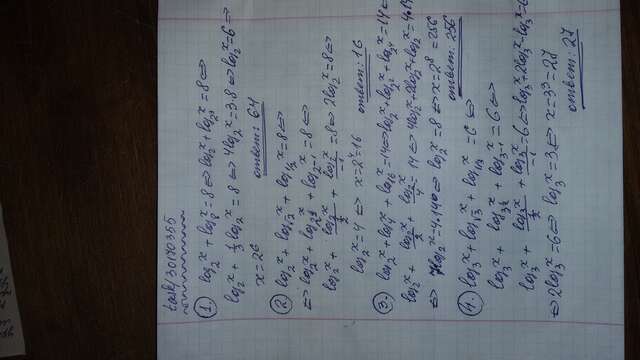 task/30170355
① log₂x + log₈x = 8 ⇔ log₂x + log₂³x = 8 ⇔
log₂x + 1/3 log₂x = 8 ⇔ 4log₂x = 3·8 ⇔ log₂x = 6 ⇔
x = 2⁶ ответ: 64
② log₂x + log√₂x + log₁/₂x = 8 ⇔
⇔ log₂x + log₂½x + log₂-₁x = 8 ⇔
log₂x + log₂x/½ + log₂x/-1 = 8 ⇔ 2log₂x = 8 ⇔
log₂x = 4 ⇔ x = 2⁴ = 16 ответ: 16
③. log₂x + log₄x + log₁₆x = 14 ⇔ log₂x + log₂²x + log₂⁴x = 14 ⇔
log₂x + log₂x/2 + log₂x/4 = 14 ⇔ 4log₂x + 2log₂x + log₂x = 4·14
⇔ 7log₂x = 4·14 ⇔ log₂x = 8 ⇔ x = 2⁸ = 256
ответ: 256
④. log₃x + log√₃x + log₁/₃x = 6 ⇔
log₃x + log₃½x + log₃-₁x = 6 ⇔
log₃x + log₃x/½ + log₃x/-1 = 6 ⇔ log₃x + 2log₃x - log₃x = 6
⇔ 2log₃x = 6 ⇔ log₃x = 3 ⇔ x = 3³ = 27
ответ: 27